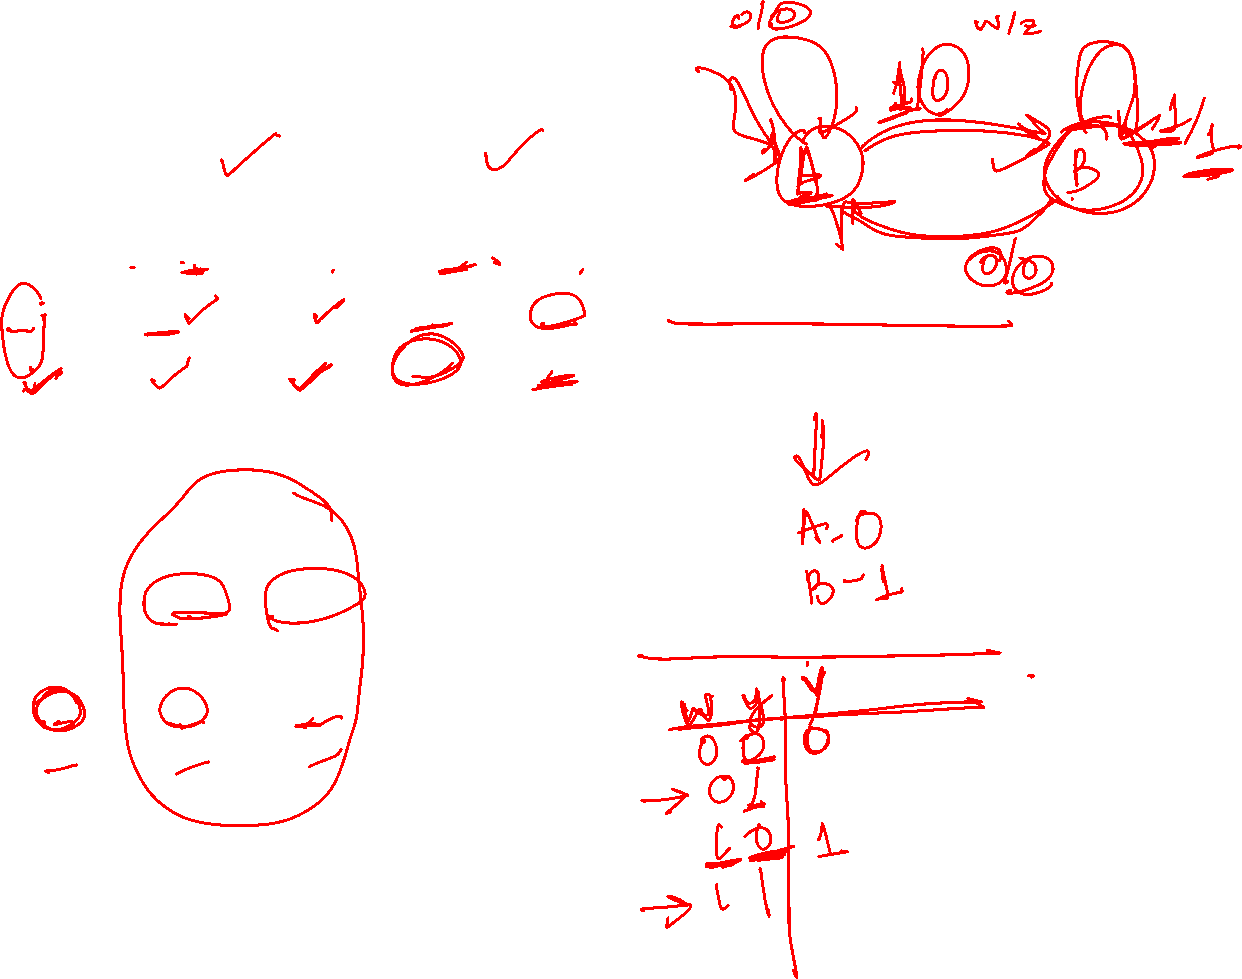 0/0 w/z
1/0
1/1
A B
0/0
A-0
B-1
w y Y
0 0 0
0 1
1 0 1
1 1